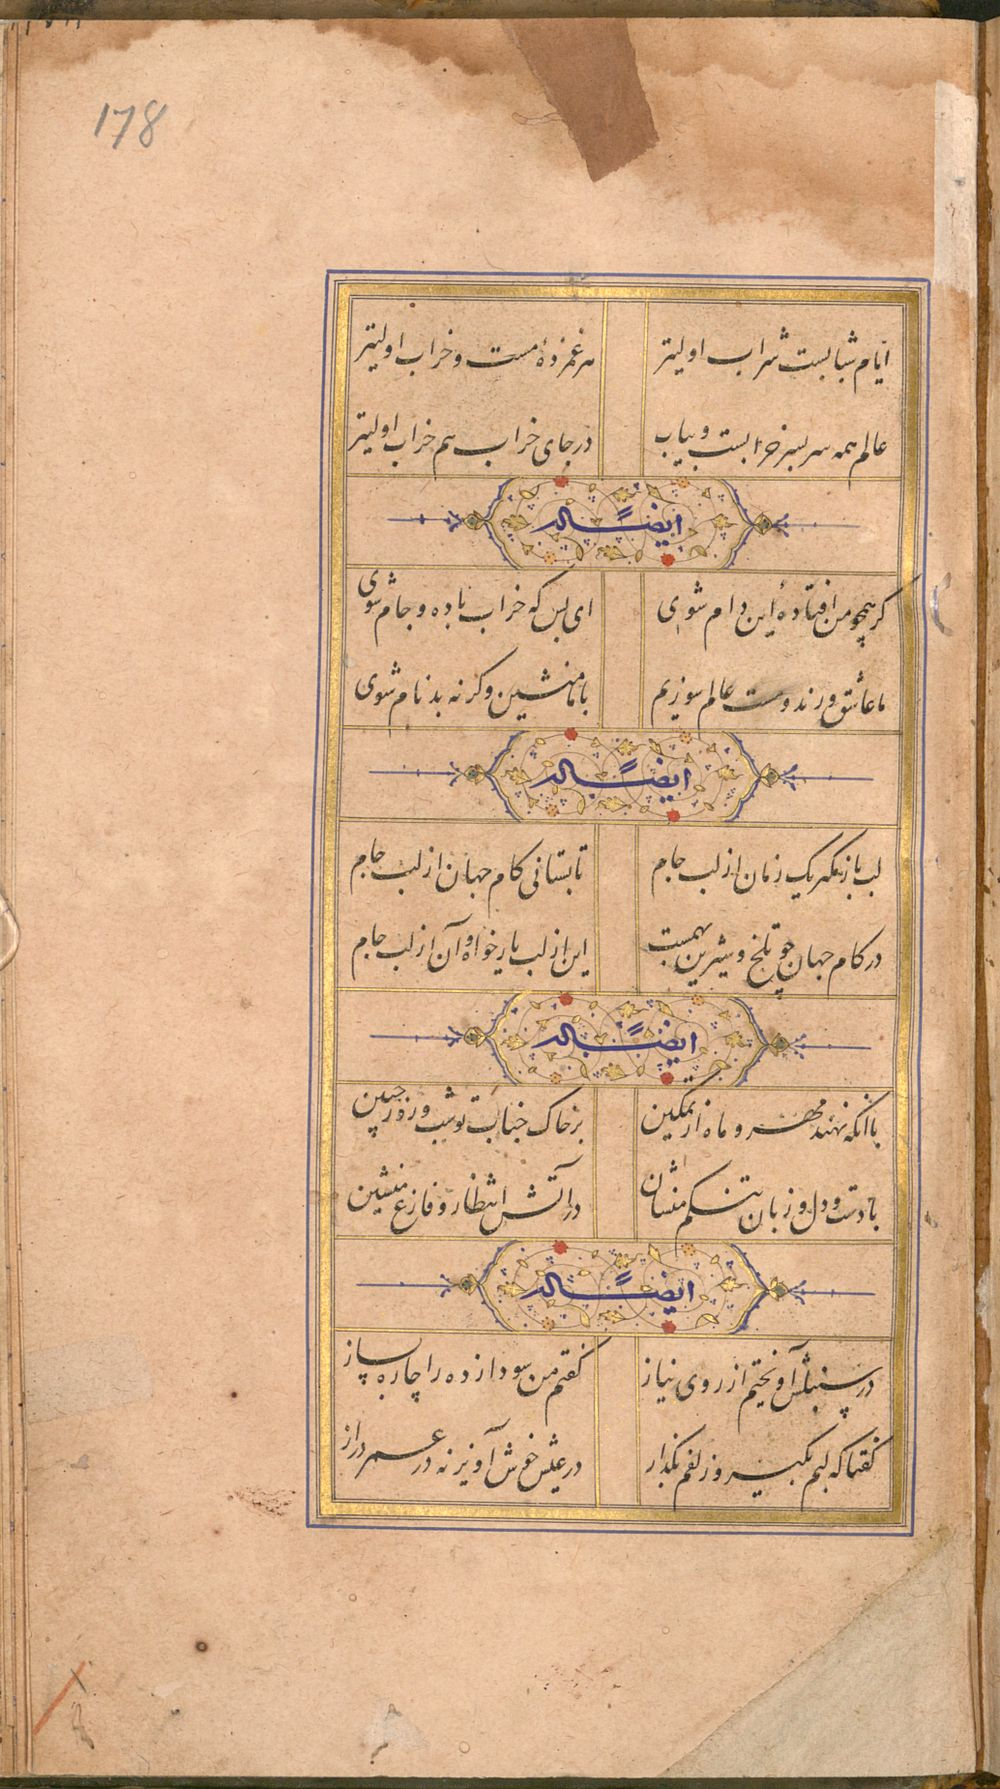 178
ایام شبابست شراب اولیتر هر غمزدهٔ مست و خراب اولیتر
عالم همه سر بسر خرابست و یباب در جای خراب هم خراب اولیتر
ایضاً له
گر همچو من افتادهٔ این دام شوی ای بس که خراب باده و جام شوی
ما عاشق و رند و مست عالم سوزیم با ما منشین و گر نه بدنام شوی
ایضاً له
لب باز مگیر یک زمان از لب جام تا بستانی کام جهان از لب جام
در کام جهان چو تلخ و شیرین بهمست این از لب یار خواه و آن از لب جام
ایضاً له
با آنکه نهند مهر و ماه از تمکین بر خاک جناب تو شب و روز جبین
با دست و دل و زبان تنگم منشان در آتش انتظار و فارغ منشین
ایضاً له
در سنبلش آویختم از روی نیاز گفتم من سودازده را چاره بساز
گفتا که لبم بگیر و زلفم بگذار در عیش خوش آویز نه در عمر دراز